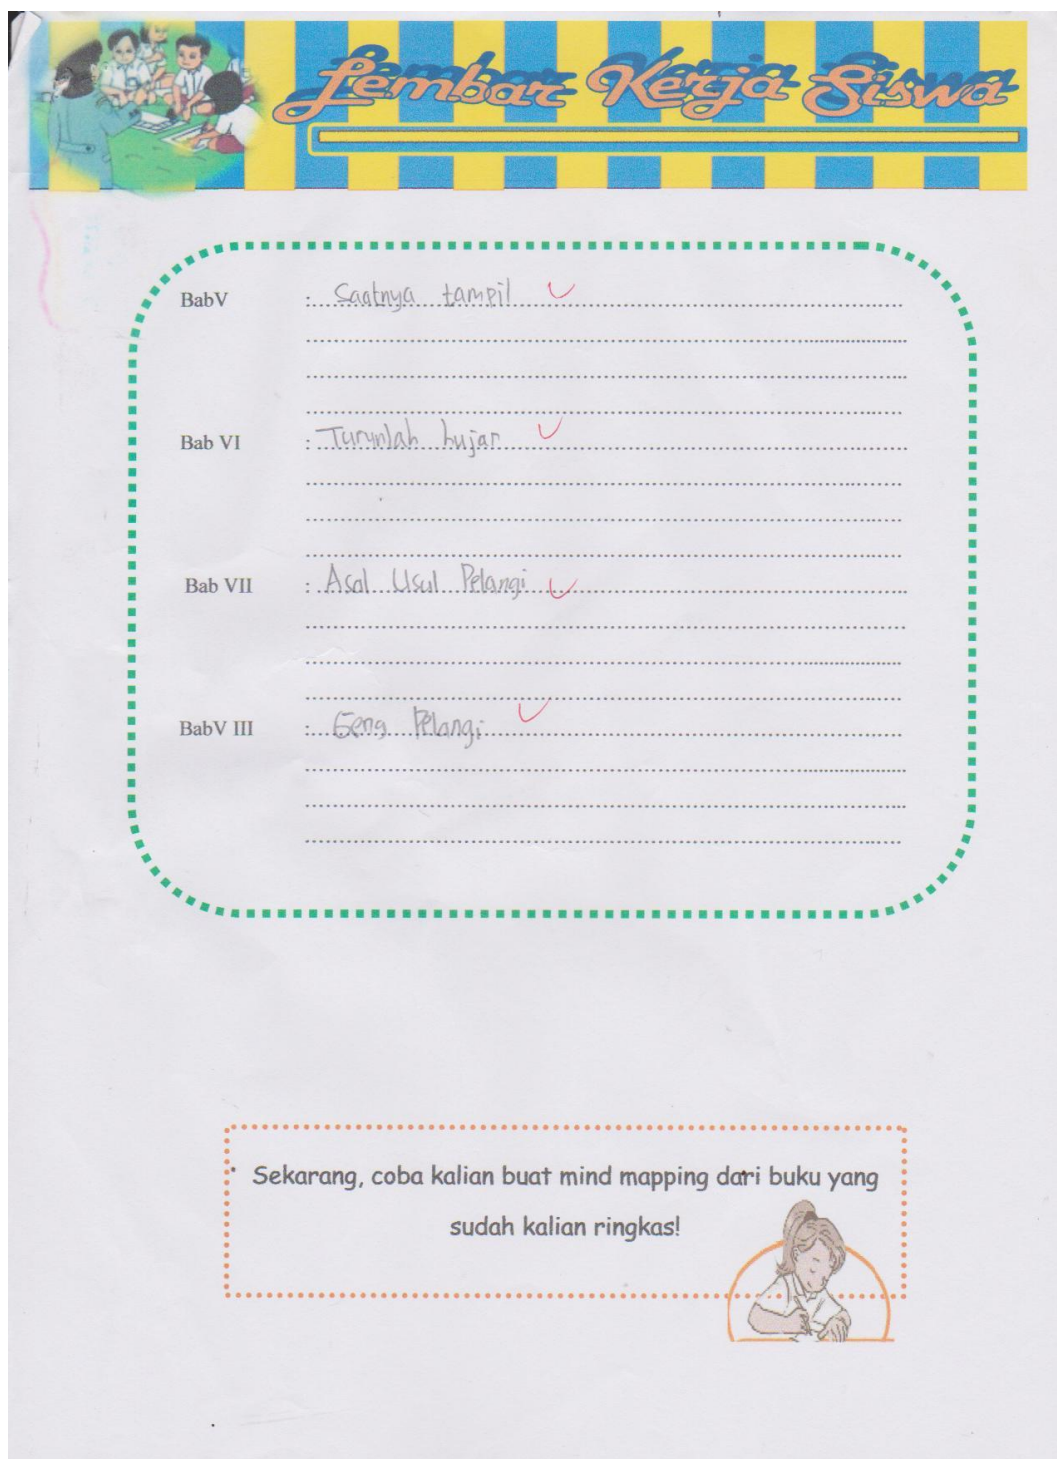 Lembar Kerja Siswa
BabV : Saatnya tampil
Bab VI : Turunlah hujan
Bab VII : Asal Usul Pelangi
BabV III : Geng Pelangi
Sekarang, coba kalian buat mind mapping dari buku yang
sudah kalian ringkas!